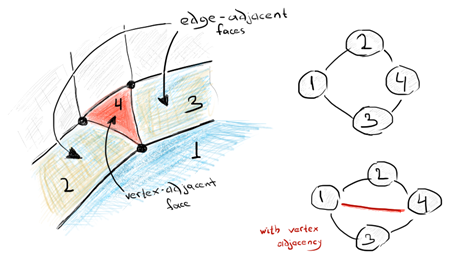 edge-adjacent
faces
4
3
1
2
vertex-adjacent
face
2
1
4
3
2
1
4
3
with vertex
adjacency